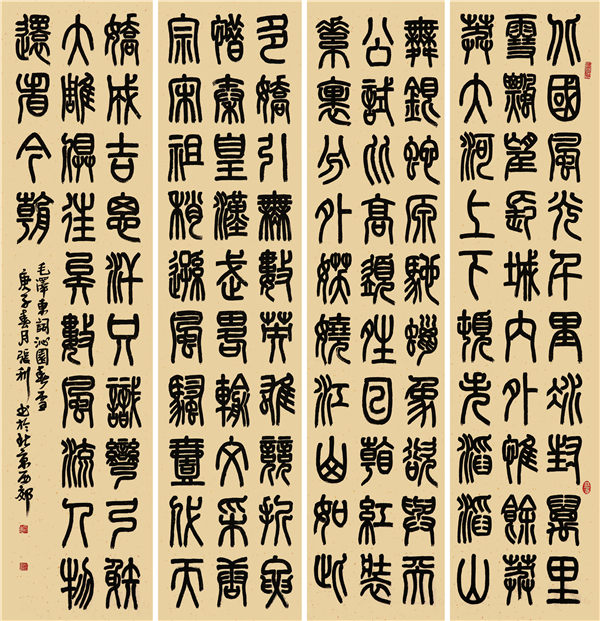 北國風光千里冰封萬里
雪飄望長城內外惟餘莽
莽大河上下頓失滔滔山
舞銀蛇原馳蠟象欲與天
公試比高須晴日看紅裝
素裹分外妖嬈江山如此
多嬌引無數英雄競折腰
惜秦皇漢武略輸文采唐
宗宋祖稍遜風騷壹代天
嬌成吉思汗只識彎弓射
大雕俱往矣數風流人物
還看今朝
毛澤東詞沁園春雪
庚子春月張利書於北京西郊